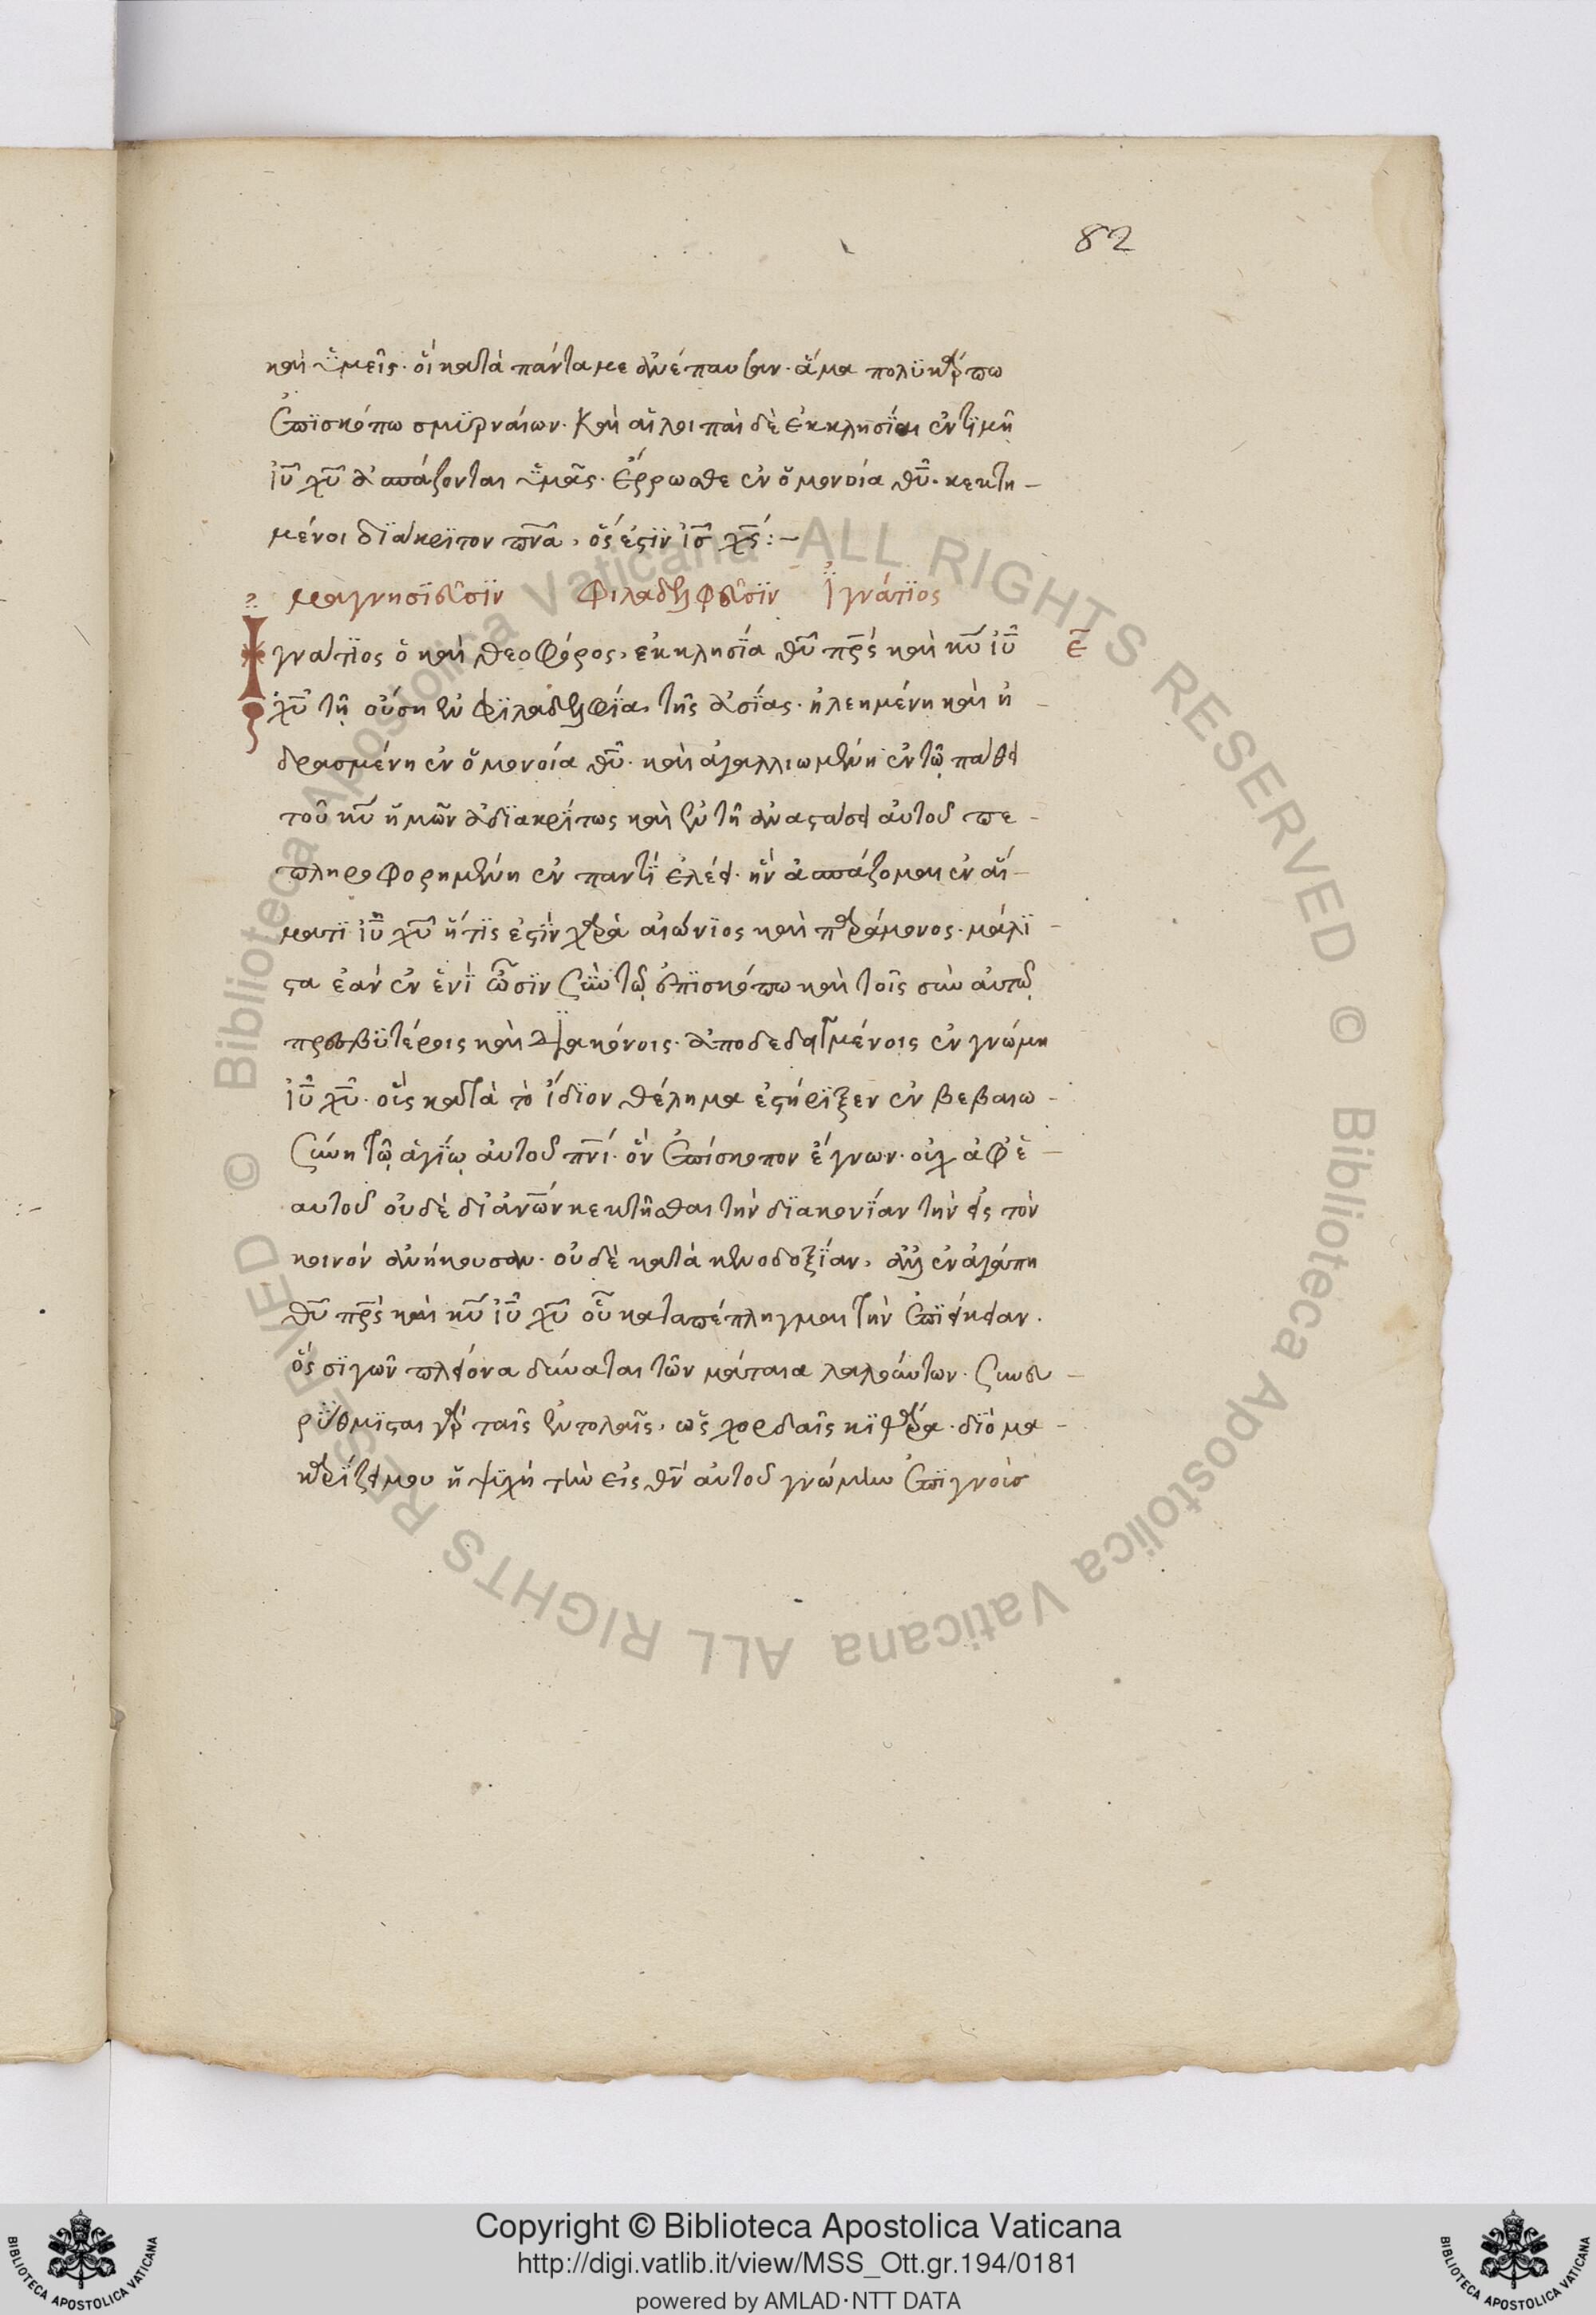 82
καὶ ὑμεῖς· οἳ κατὰ πάντα με ἀνέπαυσαν· ἅμα πολϋκάρπω
ἐπϊσκόπω σμϋρναίων· Καὶ αἱ λοιπαὶ δὲ ἐκκλησΐαι ἐν τϊμῆ
ἰῦ χῦ ἀσπάζονται ὑμᾶς· Ἔρρωσθε ἐν ὁμονοία θῦ· κεκτη-
μένοι δϊάκρϊτον πνᾶ, ὅς ἐστϊν ἰς χς:-
μαγνησϊεῦσϊν φιλαδελφεῦσϊν Ἰγνάτϊος
Ἰγνάτϊος ὁ καὶ θεοφόρος, ἐκκλησΐα θῦ πρς καὶ κῦ ἰῦ
ε
χῦ τῆ οὔση ἐν φϊλαδελφΐα, τῆς ἀσΐας· ἠλεημένη καὶ ἡ-
δρασμένη ἐν ὁμονοία θῦ· καὶ ἀγαλλιωμένη ἐν τῷ πάθει
τοῦ κῦ ἡμῶν ἀδϊακρΐτως καὶ ἐν τῆ ἀναστάσει αὐτοῦ πε-
πληροφορημένη ἐν παντΐ ἐλέει· ἣν ἀσπάζομαι ἐν αἵ-
ματϊ ἰῦ χῦ ἥτϊς ἐστϊν χαρὰ αἰώνϊος καὶ παράμονος· μάλϊ-
στα ἐὰν ἐν ἑνΐ ὦσϊν σὺν τῷ ἐπϊσκόπω καὶ τοῖς σὺν αὐτῷ
πρεσβϋτέροις καὶ διακόνοις· ἀποδεδειγμένοις ἐν γνώμη
ἰῦ χῦ· οὓς κατὰ τὸ ἴδϊον θέλημα ἐστήρϊξεν ἐν βεβαιω-
σύνη τῷ ἁγΐῳ αὐτοῦ πνΐ· ὃν ἐπίσκοπον ἔγνων· οὐχ ἀφ' ἑ-
αυτοῦ οὐδὲ δι' ἀνων κεκτῆσθαι τὴν δϊακονΐαν τὴν εἰς τὸν
κοινὸν ἀνήκουσαν· οὐδὲ κατὰ κενοδοξΐαν, ἀλλ' ἐν ἀγάπη
θῦ πρς καὶ κῦ ἰῦ χῦ οὗ καταπέπληγμαι τὴν ἐπϊείκειαν·
ὃς σϊγῶν πλείονα δύναται τῶν μάταια λαλούντων· συνευ-
ρΰθμϊσται γὰρ ταῖς ἐντολαῖς, ὡς χορδαῖς κϊθάρα· δϊὸ μα-
καρΐζει μου ἡ ψϋχή τὴν εἰς θν αὐτοῦ γνώμην ἐπϊγνοὺσ
Copyright © Biblioteca Apostolica Vaticana
http://digi.vatlib.it/view/MSS_Ott.gr.194/0181
powered by AMLAD·NTT DATA
BIBLIOTECA APOSTOLICA VATICANA
BIBLIOTECA APOSTOLICA VATICANA
© Biblioteca Apostolica Vaticana ALL RIGHTS RESERVED © Biblioteca Apostolica Vaticana ALL RIGHTS RESERVED